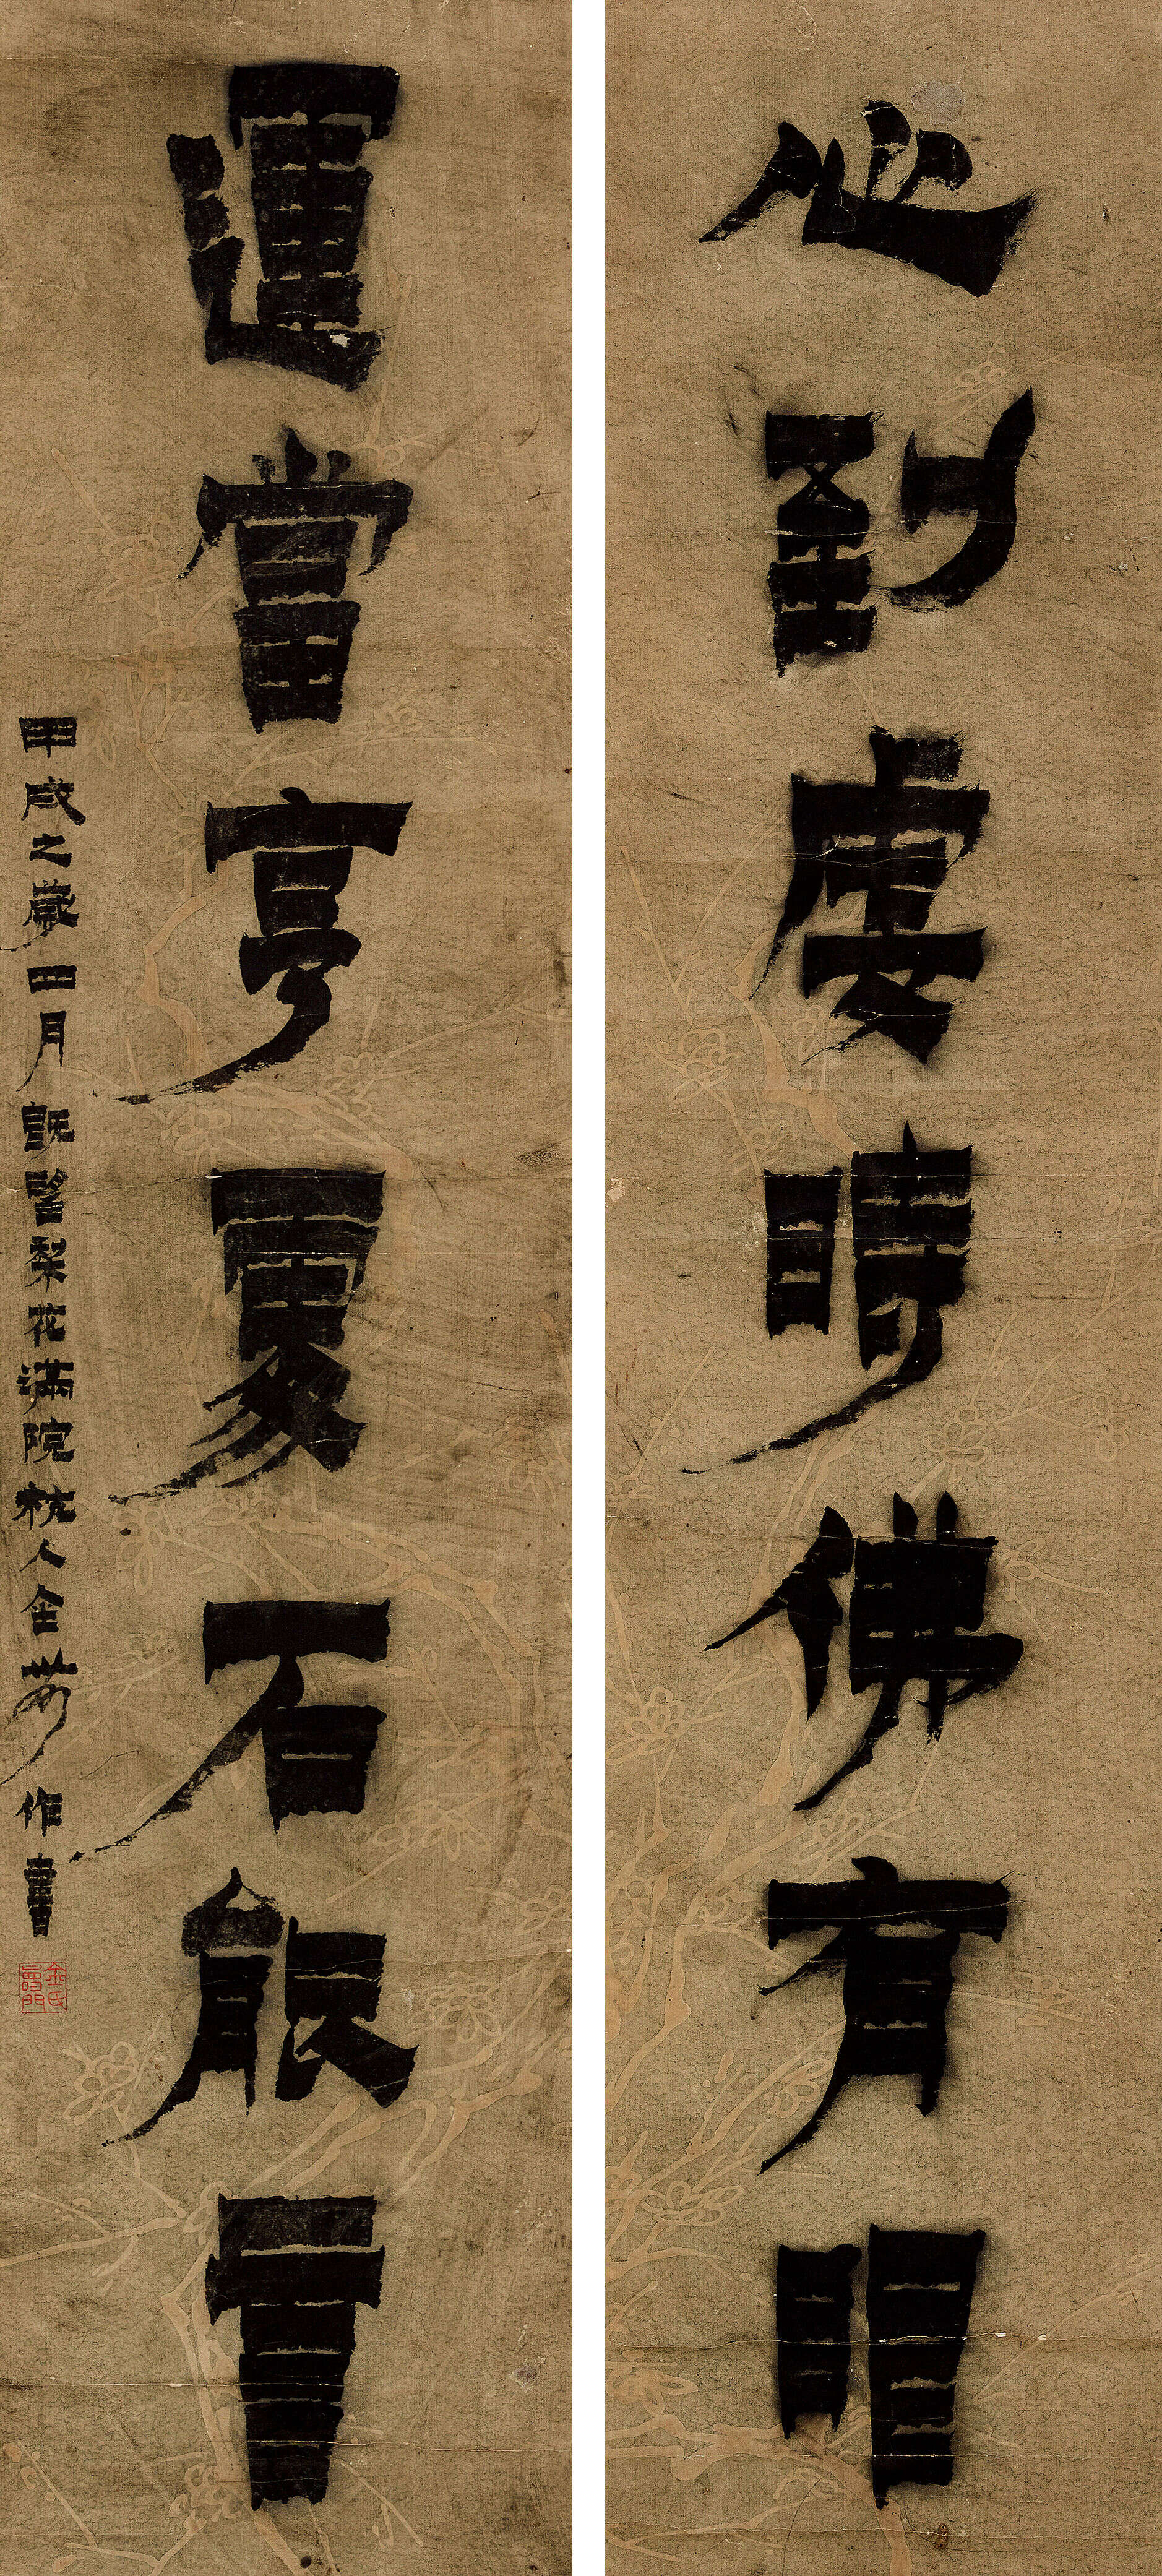 心到虔時佛有眼
運當亨處石能言
甲戌之歲四月既望梨花滿院杭人金農作書
金氏壽門